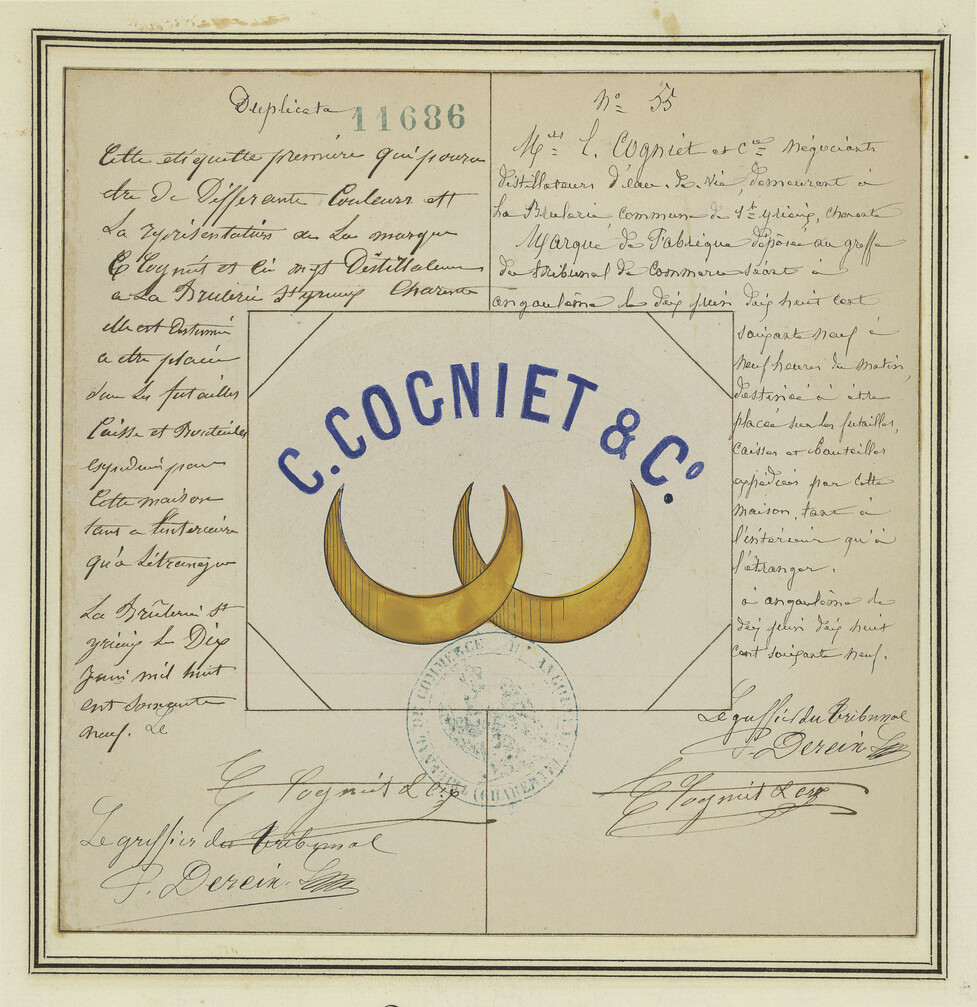 Duplicata 11686
Cette etiquette première qui poura
etre de Differante Couleurs est
La représentation de La marque
C Cogniét et Cie n-ts Distillateurs
a La Brulerie St yrieix Charente
elle est Destinnée
a etre placée
sur les futailles
Caisse et Bouteilles
expediés pour
Cette maison
tans a l'interieure
qu'a Létranger
La Brûlerie St
yrieix le Dix
Juin mil huit
cent soixante
neuf. Le
C Cogniét & Cie
Le greffier du tribunal
P. Derein
No 55
Mrs C. Cogniet et Cie négociants
distillateurs d'eau-de-vie, demeurant à
La Brulerie commune de St yrieix, charente
Marque de Fabrique déposée au greffe
du tribunal de Commerce séant à
angoulême le dix juin dix huit cent
soixante neuf à
neuf heures du matin,
destinée à être
placée sur les futailles,
caisses et bouteilles
expédiées par cette
maison, tant à
l'intérieur qu'à
l'étranger.
à angoulême le
dix juin dix huit
cent soixante neuf.
Le greffier du tribunal
P. Derein
C Cogniét & Cie
C. COGNIET & Co.
TRIBUNAL DE COMMERCE D'ANGOULEME (CHARENTE)